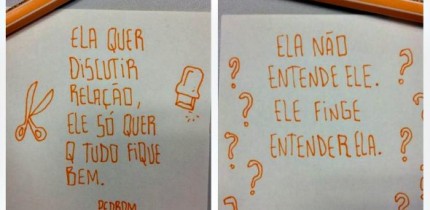 ELA QUER
DISCUTIR
RELAÇÃO,
ELE SÓ QUER
Q TUDO FIQUE
BEM.
ELA NÃO
ENTENDE ELE.
ELE FINGE
ENTENDER ELA.